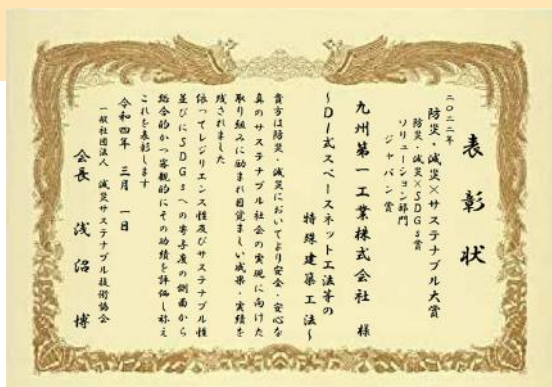 表彰状
二〇二二年
防災・減災×サステナブル大賞
防災・減災×SDGs賞
ソリューション部門
ジャパン賞
九州第一工業株式会社 様
～DI式スペースネット工法等の
特殊建築工法～
貴方は防災・減災においてより安全・安心な
真のサステナブル社会の実現に向けた
取り組みに励まれ目覚ましい成果・実績を
残されました
依ってレジリエンス性及びサステナブル性
並びにSDGsへの寄与度の側面から
総合的かつ客観的にその功績を評価し称え
これを表彰します
令和四年 三月 一日
一般社団法人 減災サステナブル技術協会
会長 浅沼 博